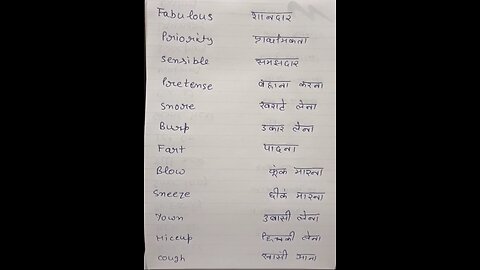 Fabulous शानदार
Priority प्राथमिकता
Sensible समझदार
Pretense बहाना करना
Snore खर्राटे लेना
Burp डकार लेना
Fart पादना
Blow फूंक मारना
Sneeze छींक मारना
Yown उबासी लेना
Hiccup हिचकी लेना
Cough खासी आना